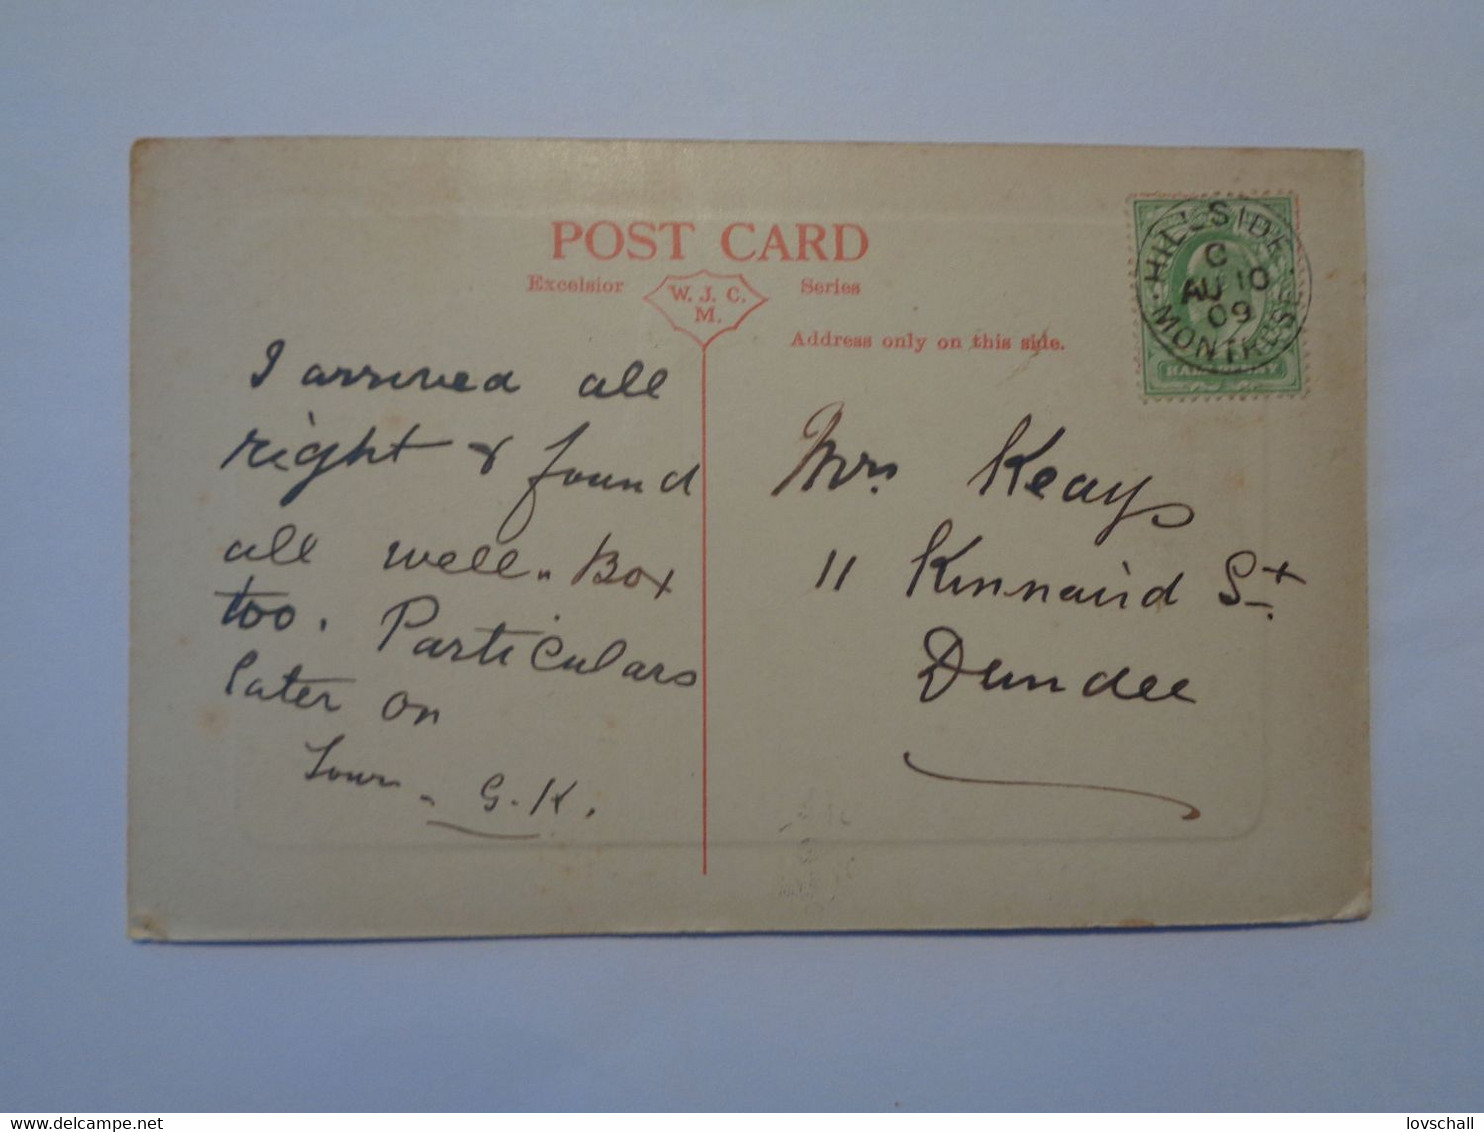 POST CARD
Excelsior W. J. C. M. Series
Address only on this side.
HILLSIDE.
C
AU 10
09
MONTROSE
HALFPENNY
I arrived all
right & found
all well. Box
too. Particulars
later on
G. K.
Mrs Keay
11 Kinnaird St.
Dundee
delcampe.net
lovschall